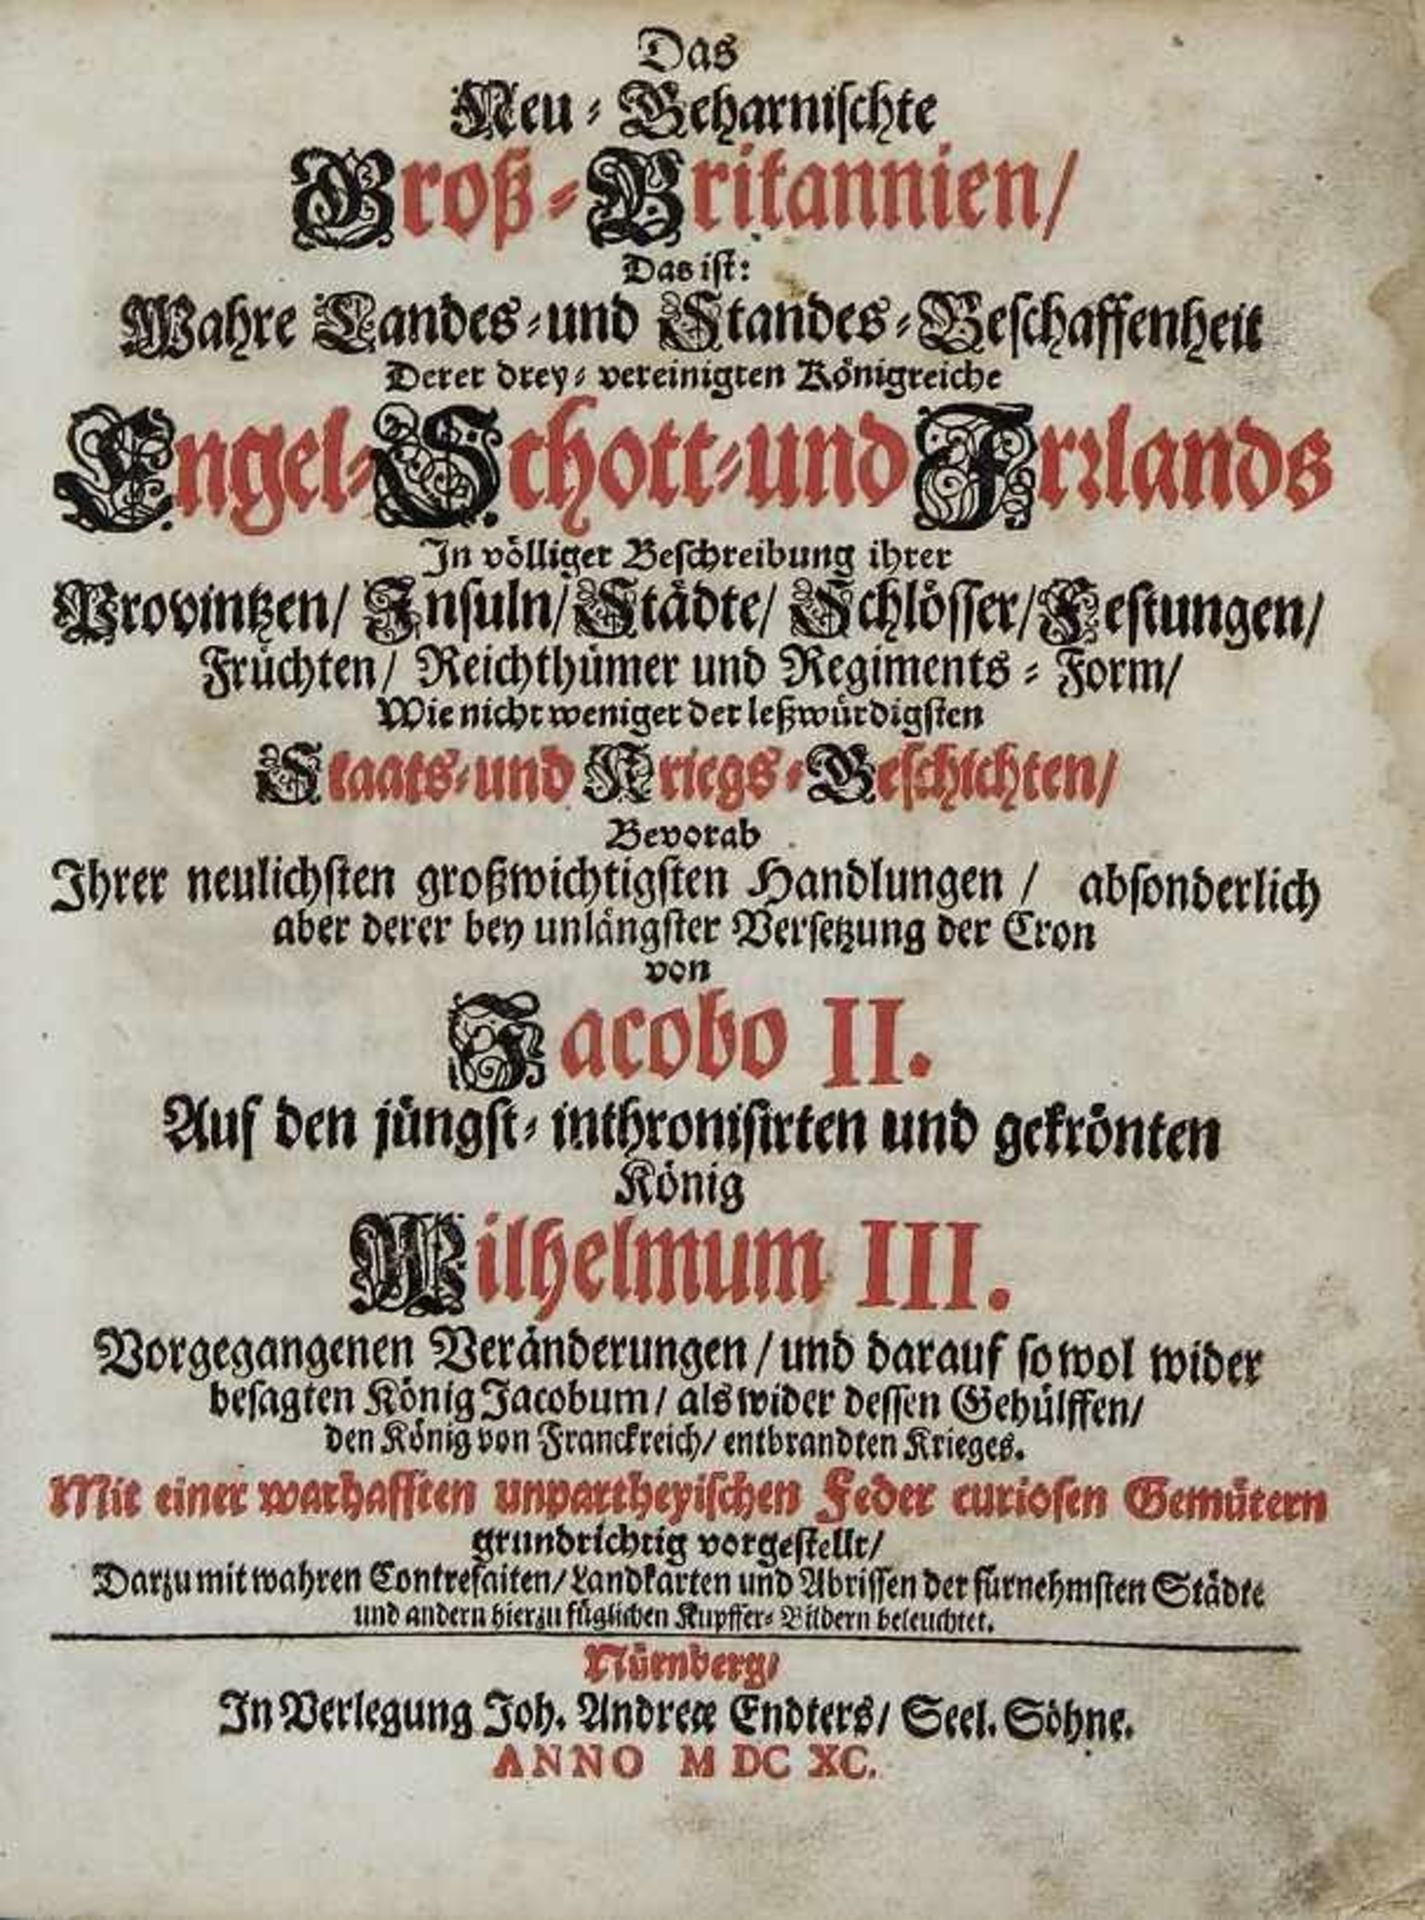 Das
Neu-Beharnischte
Groß-Britannien/
Das ist:
Wahre Landes-und Standes-Beschaffenheit
Derer drey-vereinigten Königreiche
Engel-Schott-und Irrlands
In völliger Beschreibung ihrer
Provintzen/ Insuln/ Städte/ Schlösser/ Festungen/
Früchten/ Reichthümer und Regiments-Form/
Wie nicht weniger der leßwürdigsten
Staats-und Kriegs-Geschichten/
Bevorab
Ihrer neulichsten großwichtigsten Handlungen / absonderlich
aber derer bey unlängster Versetzung der Cron
von
Jacobo II.
Auf den jüngst-inthronisirten und gekrönten
König
Wilhelmum III.
Vorgegangenen Veränderungen / und darauf so wol wider
besagten König Jacobum / als wider dessen Gehülffen/
den König von Franckreich/ entbrandten Krieges.
Mit einer warhafften unpartheyischen Feder curiosen Gemütern
grundrichtig vorgestellt/
Darzu mit wahren Contrefaiten/ Landkarten und Abrissen der fürnehmsten Städte
und andern hierzu füglichen Kupffer-Bildern beleuchtet.
Nürnberg/
In Verlegung Joh. Andreæ Endters/ Seel. Söhne.
ANNO M DC XC.